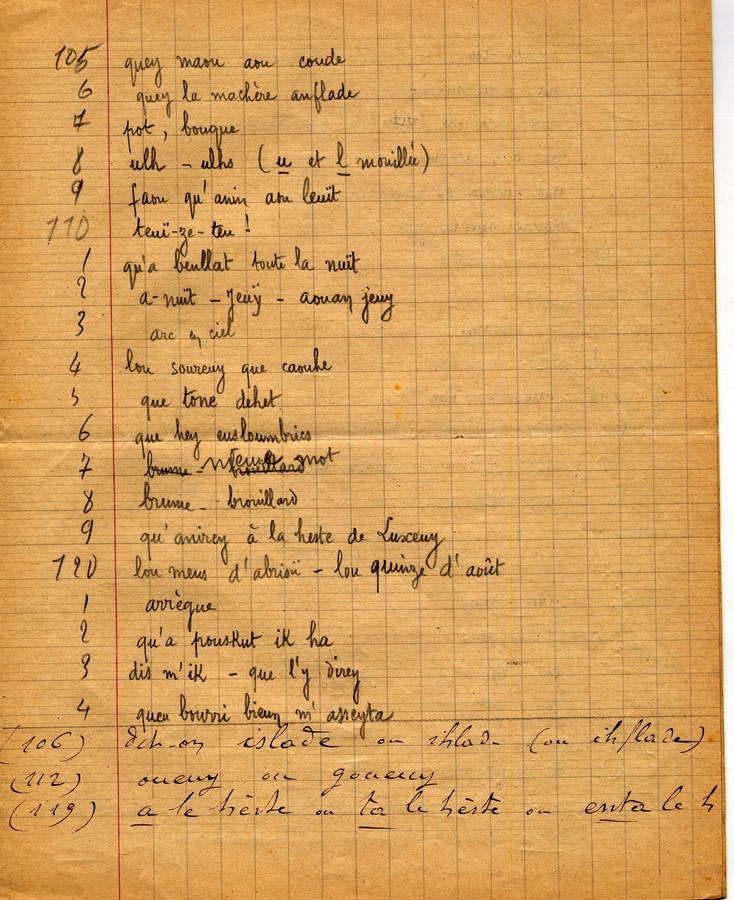 105 quey maou aou coude
6 quey la machère anflade
7 pot, bouque
8 ulh - ulhs (u et l mouillé)
9 faou qu'anin aou leuït
110 teuï-ze-teu !
1 qu'a beullat toute la nuït
2 a-nuït - jeuÿ - aouan jeuy
3 arc en ciel
4 lou soureuy que caouhe
5 que tone dehet
6 que hey eusloumbrics
7 brume - brouillard même mot
8 brume - brouillard
9 qu'anirey à la heste de Luxeuy
120 lou meus d'abrioü - lou quinze d'août
1 arrègue
2 qu'a pouskut ik ha
3 dis m'ik - que l'y direy
4 queu bourri bieun m'asseyta
(106) islade ou ihlade (ou ihflade)
(112) oueuy ou goueuy
(119) a le hèste ou ta le hèste ou enta le h